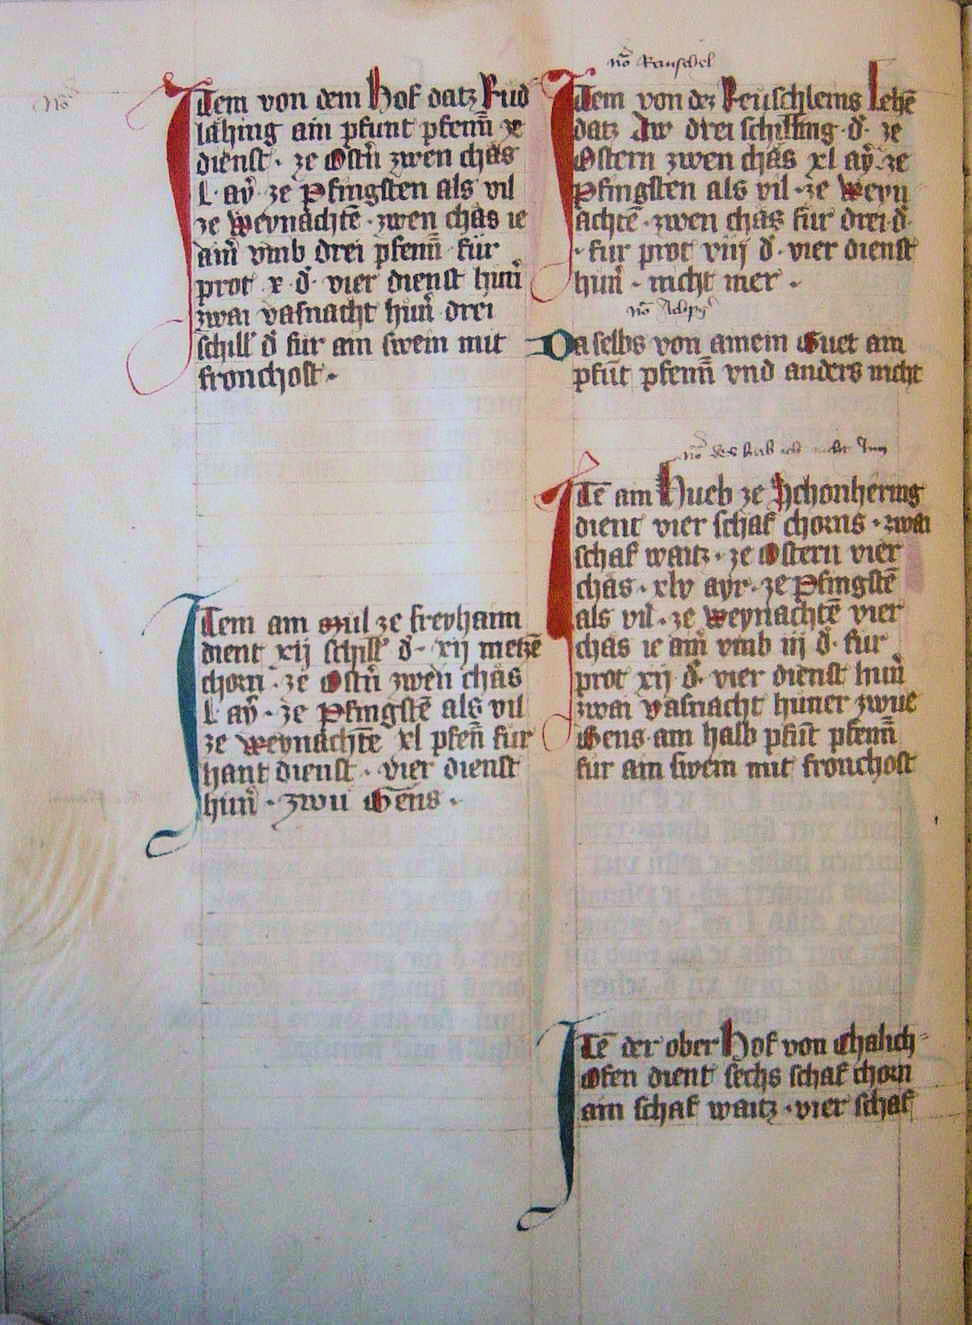 Item von dem Hof datz Rud
laching ain pfunt pfenn̄ ze
dienst · ze Ostn̄ zwen chäs
l · aӱ · ze Pfingsten als vil
ze weynachtē · zwen chäs ie
ain̄ vmb drei pfenn̄ · fur
prot · x · d̄ · vier dienst hun̄
zwai vasnacht hun̄ drei
schill d̄ fur ain swein mit
fronchost ·
Item am Mul ze freyhaim
dient xij schill d̄ · xij metzē
chorn · ze Ostn̄ zwen chäs
l · aӱ · ze Pfingstē als vil
ze weynachtē xl pfen̄ fur
hant dienst · vier dienst
hun̄ · zwu Gens ·
Item von der Reuschleins Lehē
datz Aw drei schilling · d̄ · ze
Ostern zwen chäs xl aӱ · ze
Pfingsten als vil · ze weyn
achtē · zwen chäs fur drei · d̄ ·
· fur prot viij d̄ · vier dienst
hun̄ · nicht mer ·
Daselbs von ainem Guet ain
pfūt pfenn̄ vnd anders nicht
Itē ain Hueb ze Schonhering
dient vier schaf chorns · zwai
schaf waitz · ze Ostern vier
chäs · xlv ayr · ze Pfingstē
als vil · ze weynachtē vier
chäs ie ain̄ vmb iij d̄ · fur
prot xij d̄ · vier dienst hun̄
zwai vasnacht huner zwue
Gens · ain halb pfūt pfenn̄
fur ain swein mit fronchost
Itē der ober Hof von Chalich-
Ofen dient sechs schaf chorn
ain schaf waitz · vier schaf